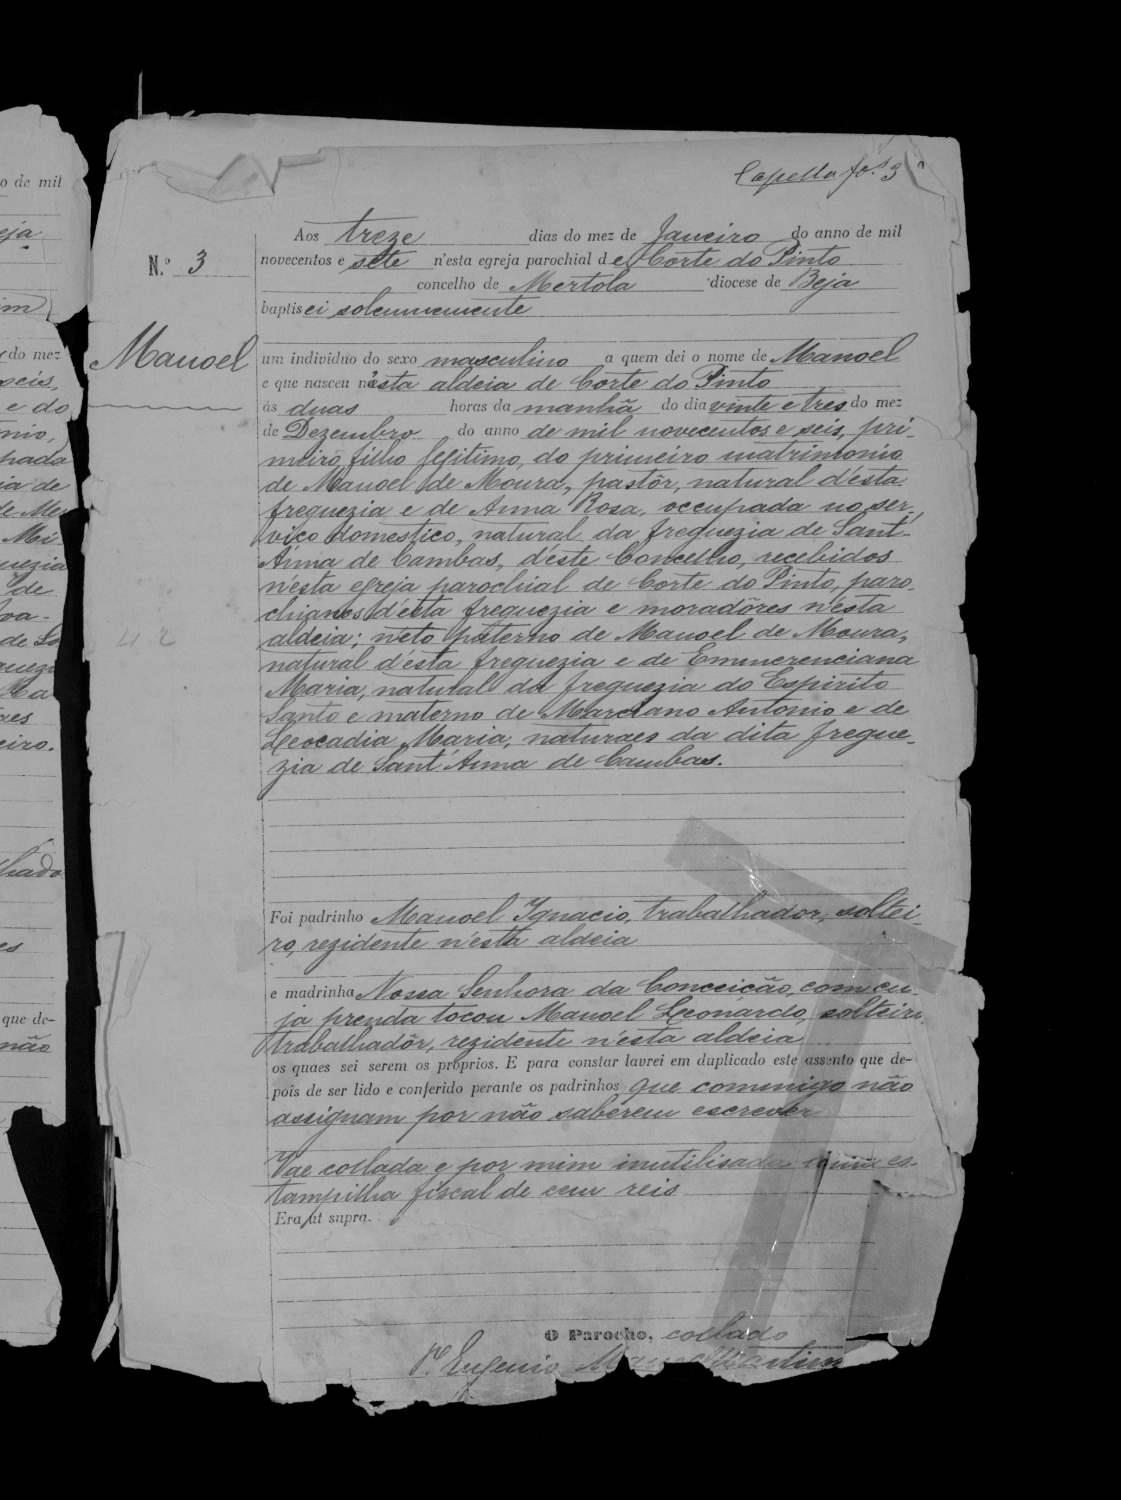 Capella fs. 3
Aos treze dias do mez de Janeiro do anno de mil
N.º 3
novecentos e sete n'esta egreja parochial de Corte do Pinto
concelho de Mertola diocese de Beja
baptisei solemnemente
Manoel
um individuo do sexo masculino a quem dei o nome de Manoel
e que nasceu n'esta aldeia de Corte do Pinto
ás duas horas da manhã do dia vinte e tres do mez
de Dezembro do anno de mil novecentos e seis, pri-
meiro filho legitimo, do primeiro matrimonio
de Manoel de Moura, pastôr, natural d'esta
freguezia e de Anna Rosa, occupada no ser-
viço domestico, natural da freguezia de Sant'
Anna de Cambas, d'éste Concelho, recebidos
n'esta egreja parochial de Corte do Pinto, paro-
chianos d'ésta freguezia e moradôres n'ésta
aldeia; neto paterno de Manoel de Moura,
natural d'ésta freguezia e de Emmerenciana
Maria, natural da freguezia do Espirito
Santo e materno de Marciano Antonio e de
Leocadia Maria, naturaes da dita fregue-
zia de Sant'Anna de Cambas.
42
Foi padrinho Manoel Ignacio, trabalhador, soltei-
ro, rezidente n'ésta aldeia
e madrinha Nossa Senhora da Conceição, com cu-
ja prenda tocou Manoel Leonardo, solteiro,
trabalhadôr, rezidente n'ésta aldeia
os quaes sei serem os proprios. E para constar lavrei em duplicado este assento que de-
pois de ser lido e conferido perante os padrinhos que commigo não
assignam por não saberem escrever
Vae collada e por mim inutilisada uma es-
tampilha fiscal de cem reis
Era ut supra.
O Parocho, collado
P.e Eugenio Manoel Martins
o de mil
eja
im
do mez
seis,
e do
nio,
pada
ia de
de Me
Mi
uezia
de
va-
de Sa
uezi
Ma
aes
eiro.
lhado
es
que de-
não